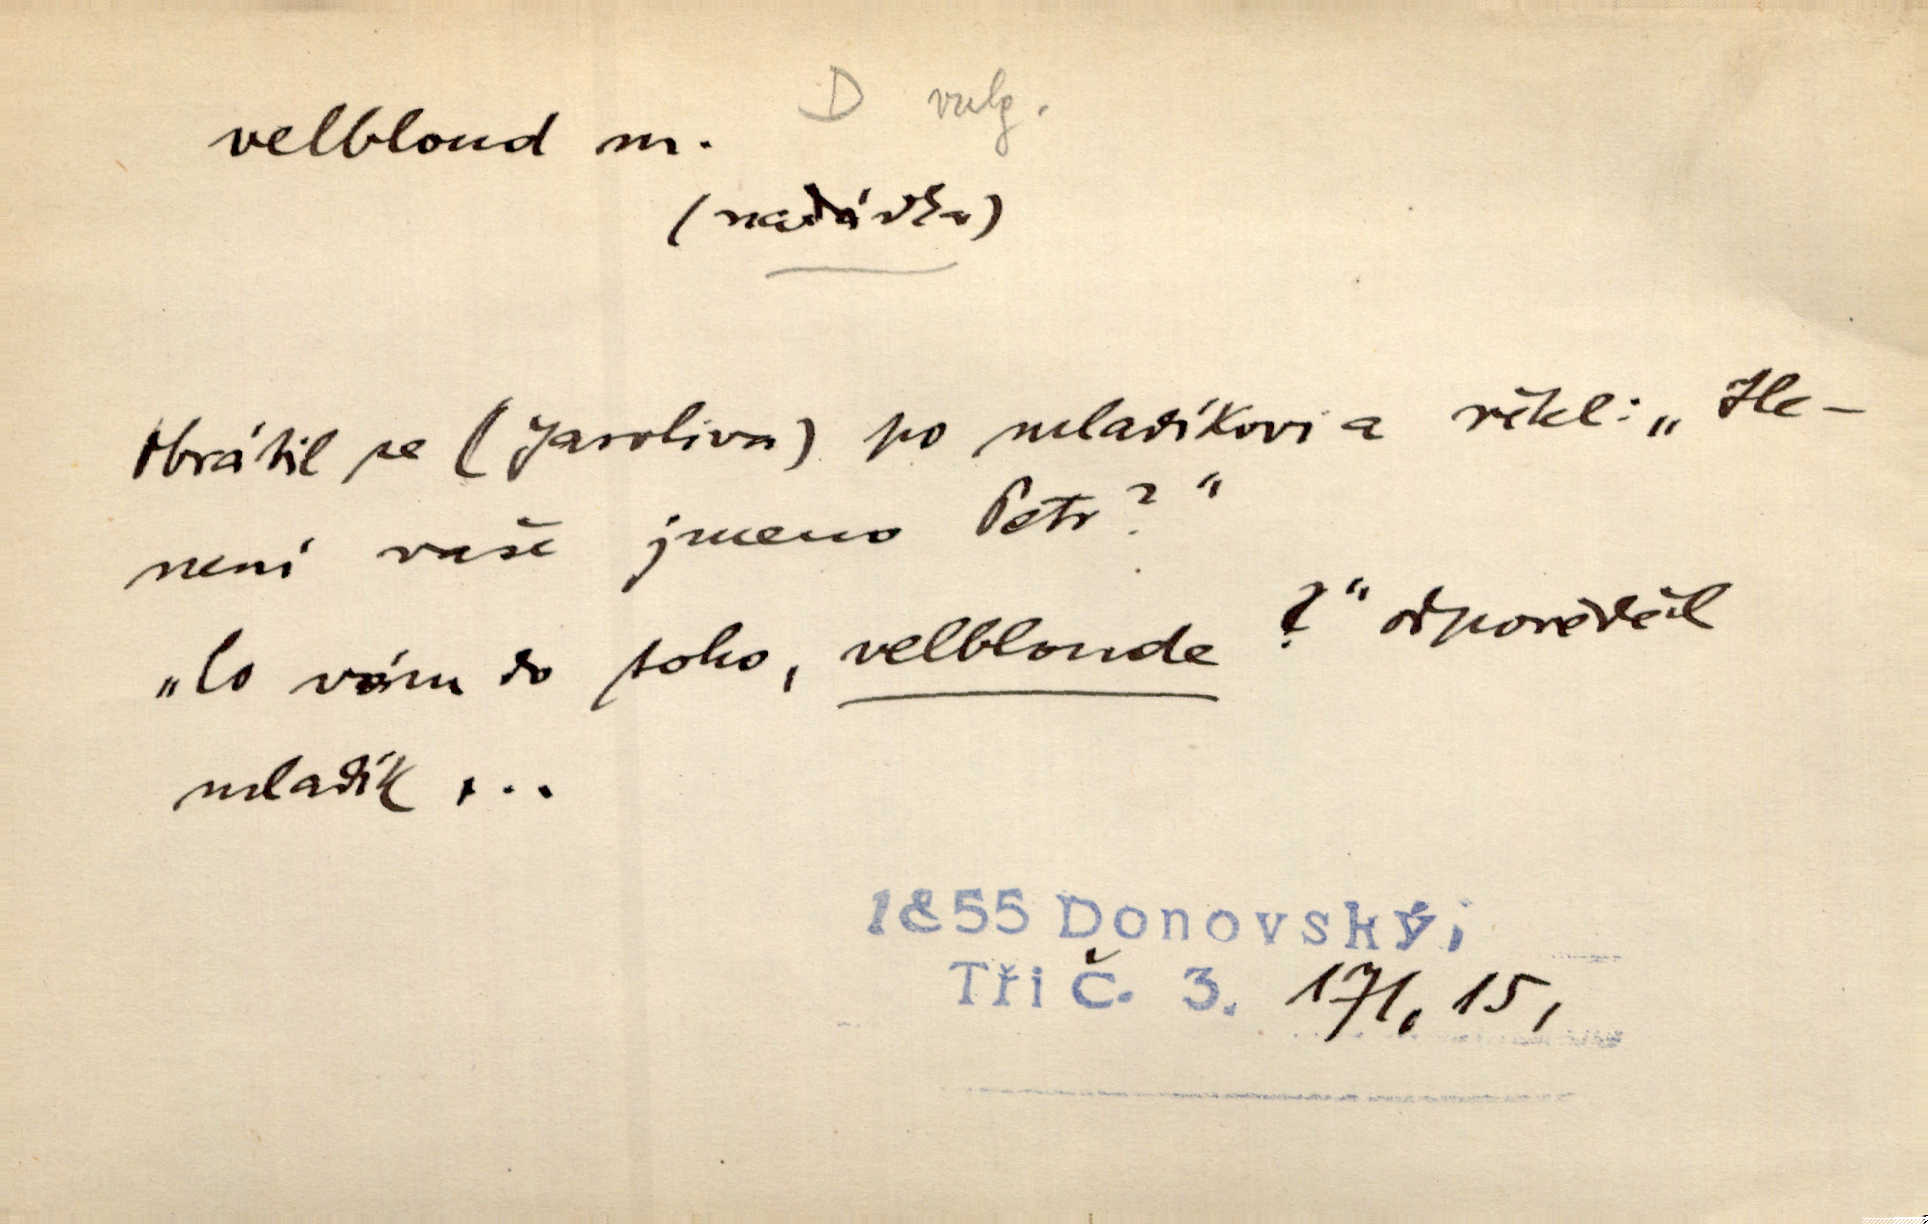 D vulg.
velbloud m.
(nadávka)
Obrátil se (Jaroliva) po mladíkovi a řekl: „Ne-
není vaše jmeno Petr?“
„Co vám do toho, velbloude?“ odpověděl
mladík ...
1855 Donovský,
Tři č. 3. 171, 15,